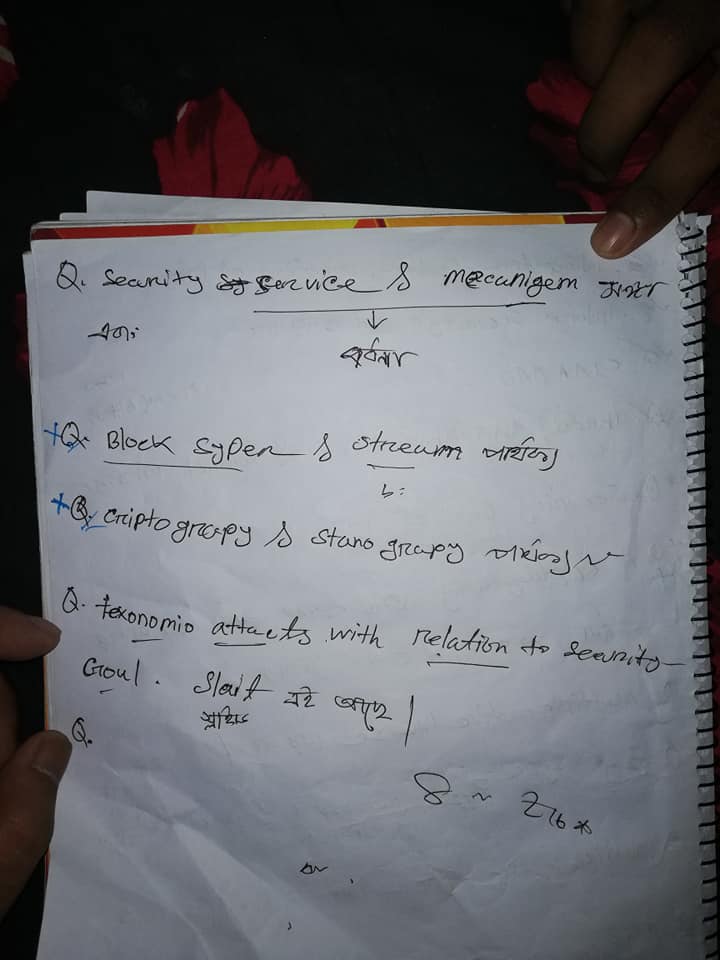 Q. Security service ও mecanigem
এবং
বর্ননা
Q. Block syper ও stream পার্থক্য
Q. criptograpy ও stanograpy পার্থক্য
Q. texonomio attacts with relation to security
Goul. Slait এই আছে |
স্লাইড
Q.